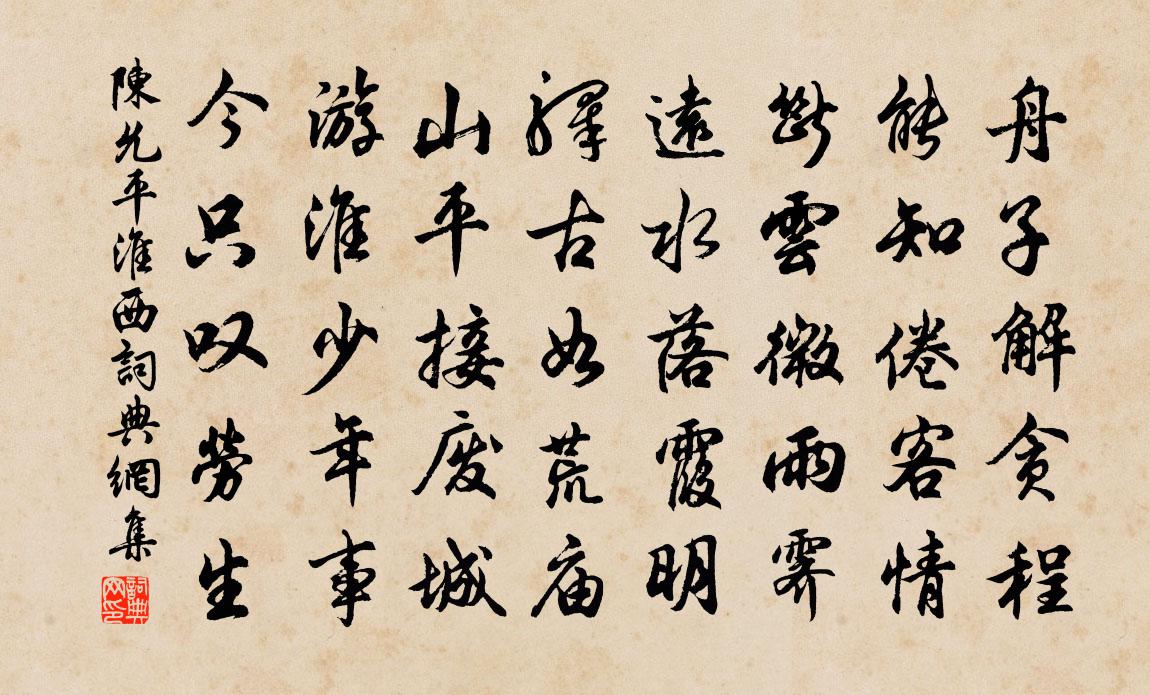 舟子解贪程
能知倦客情
断雲微雨霽
遠水落霞明
驛古如荒庙
山平接废城
游淮少年事
今只叹勞生
陳允平淮西詞典網集
詞典网印